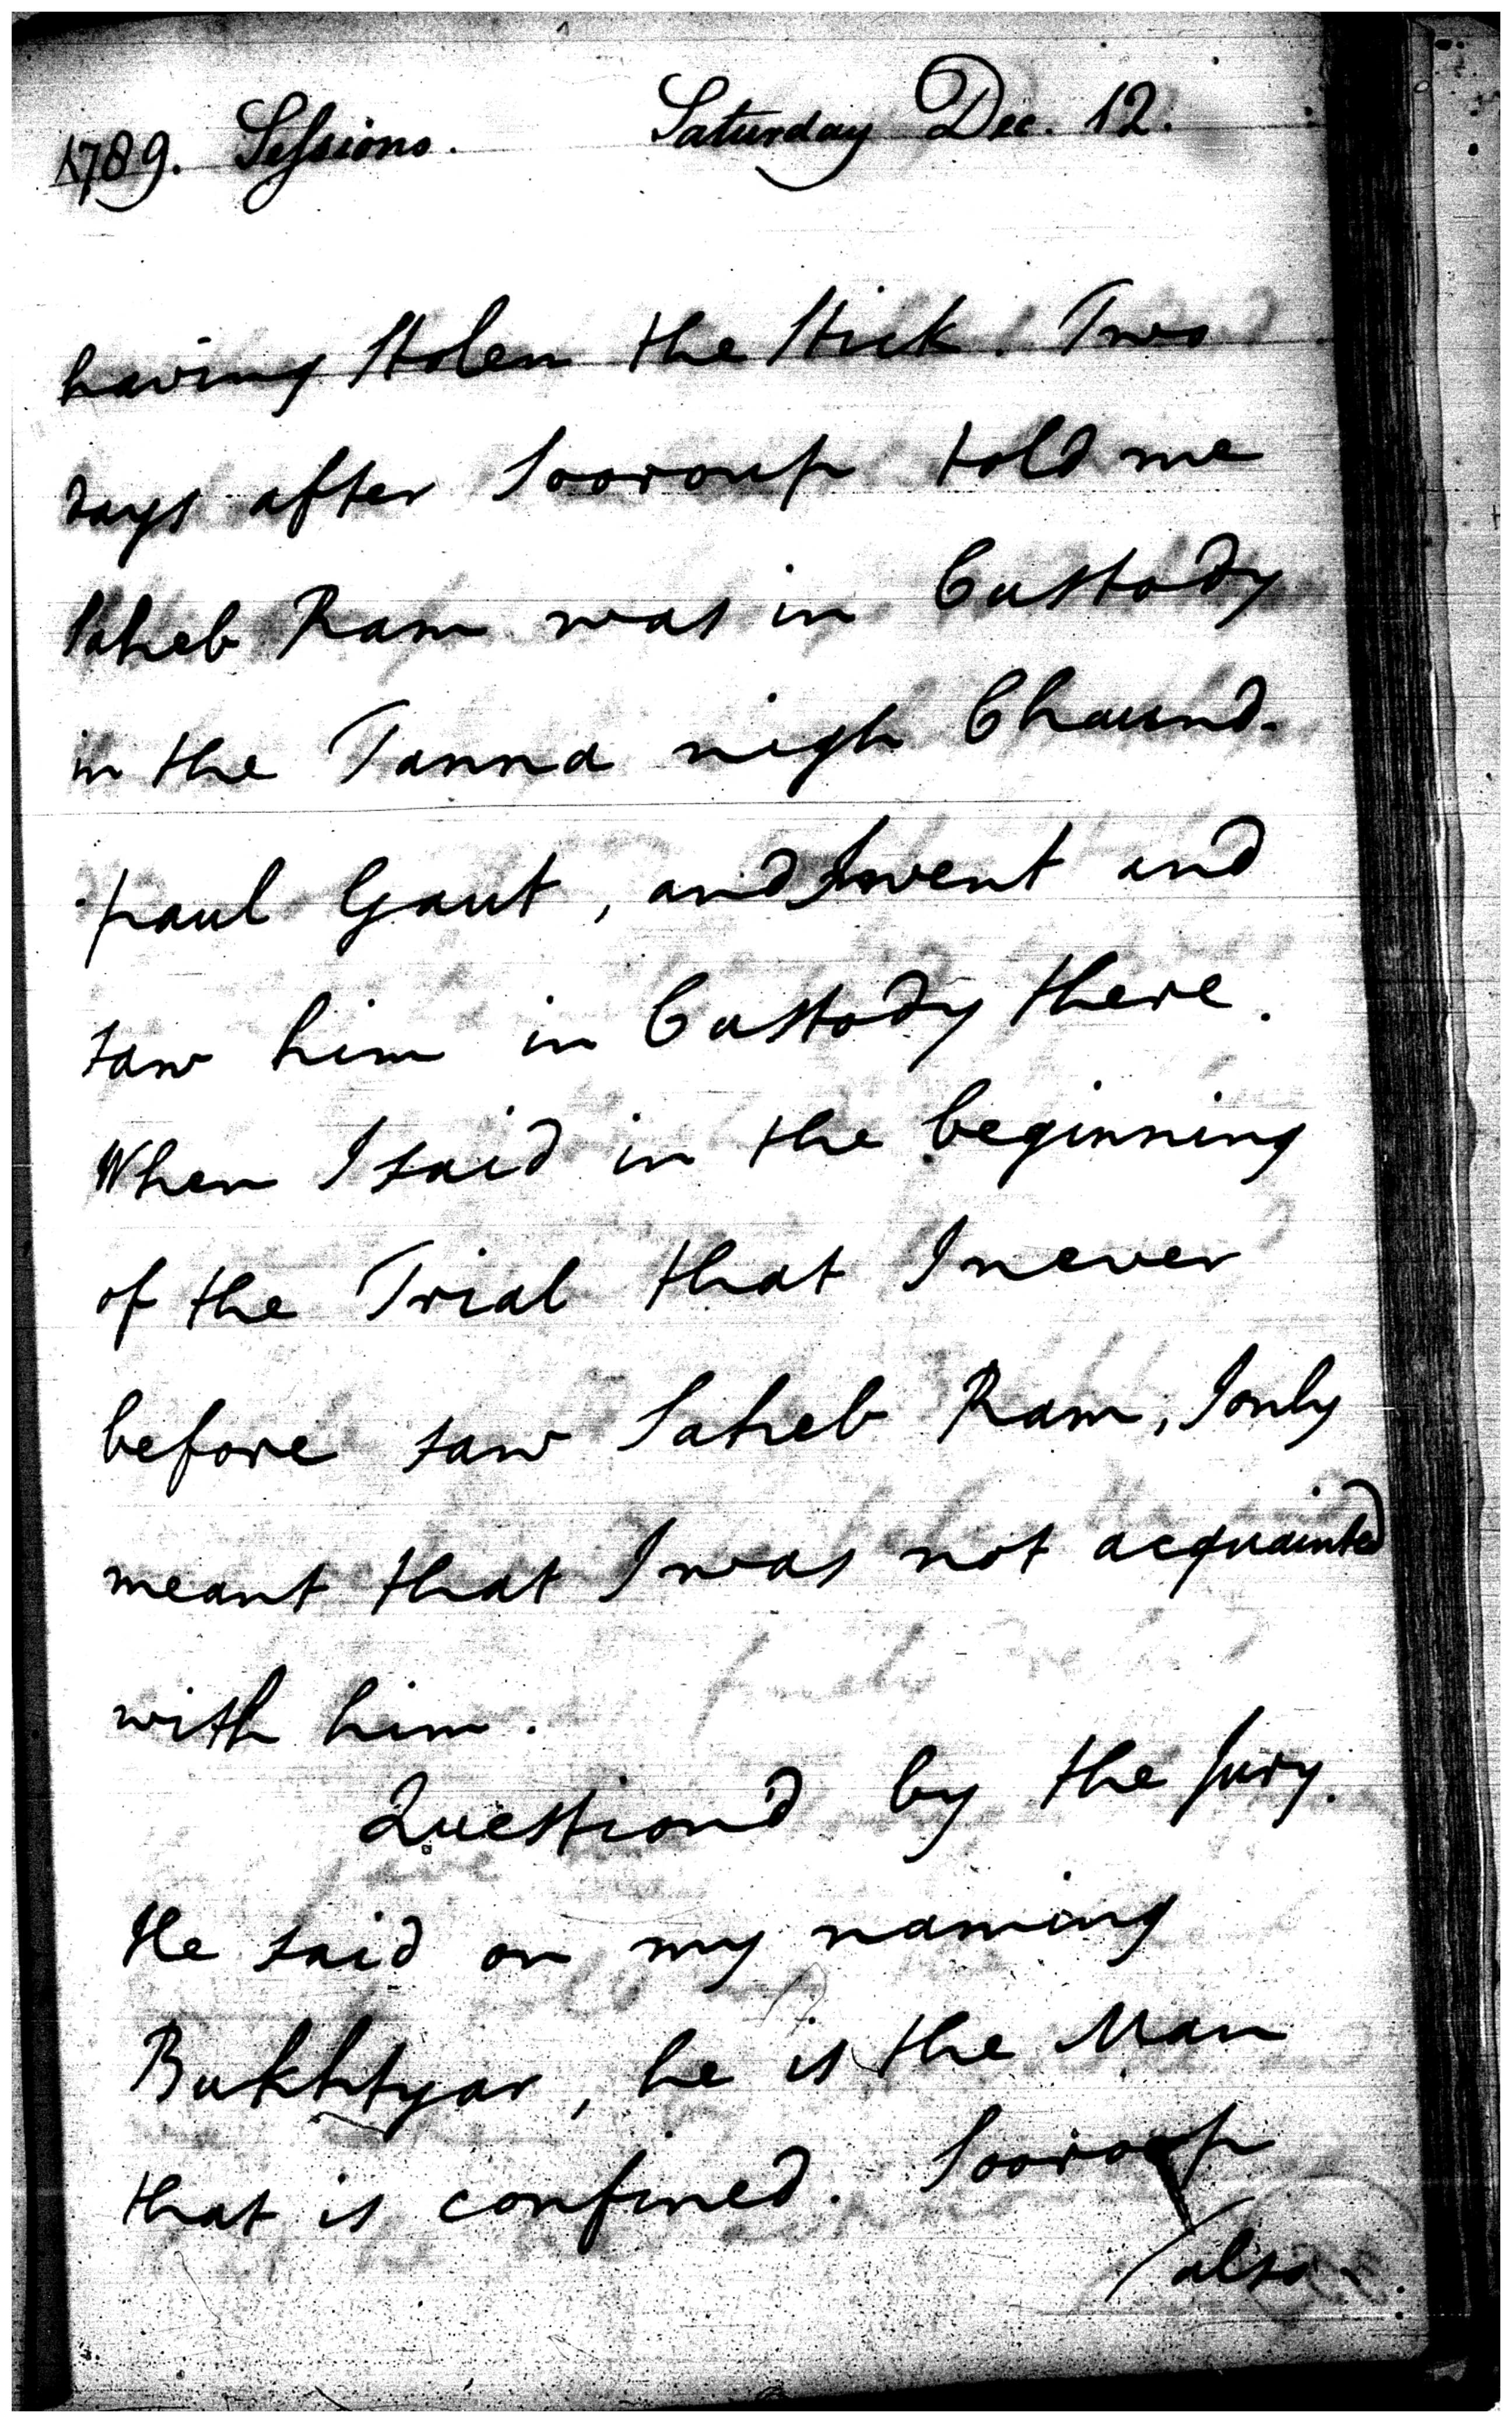 1789. Sessions. Saturday Dec. 12.
having Stolen the Stick. Two
days after Sooroup told me
Saheb Ram was in Custody
in the Tanna nigh Chaund-
paul Gaut, and I went and
saw him in Custody there.
When I said in the beginning
of the Trial that I never
before saw Saheb Ram, I only
meant that I was not acquainted
with him.
Question'd by the Jury.
He said on my naming
Bukhtyar, he is the Man
that is confined. Sooroop
also